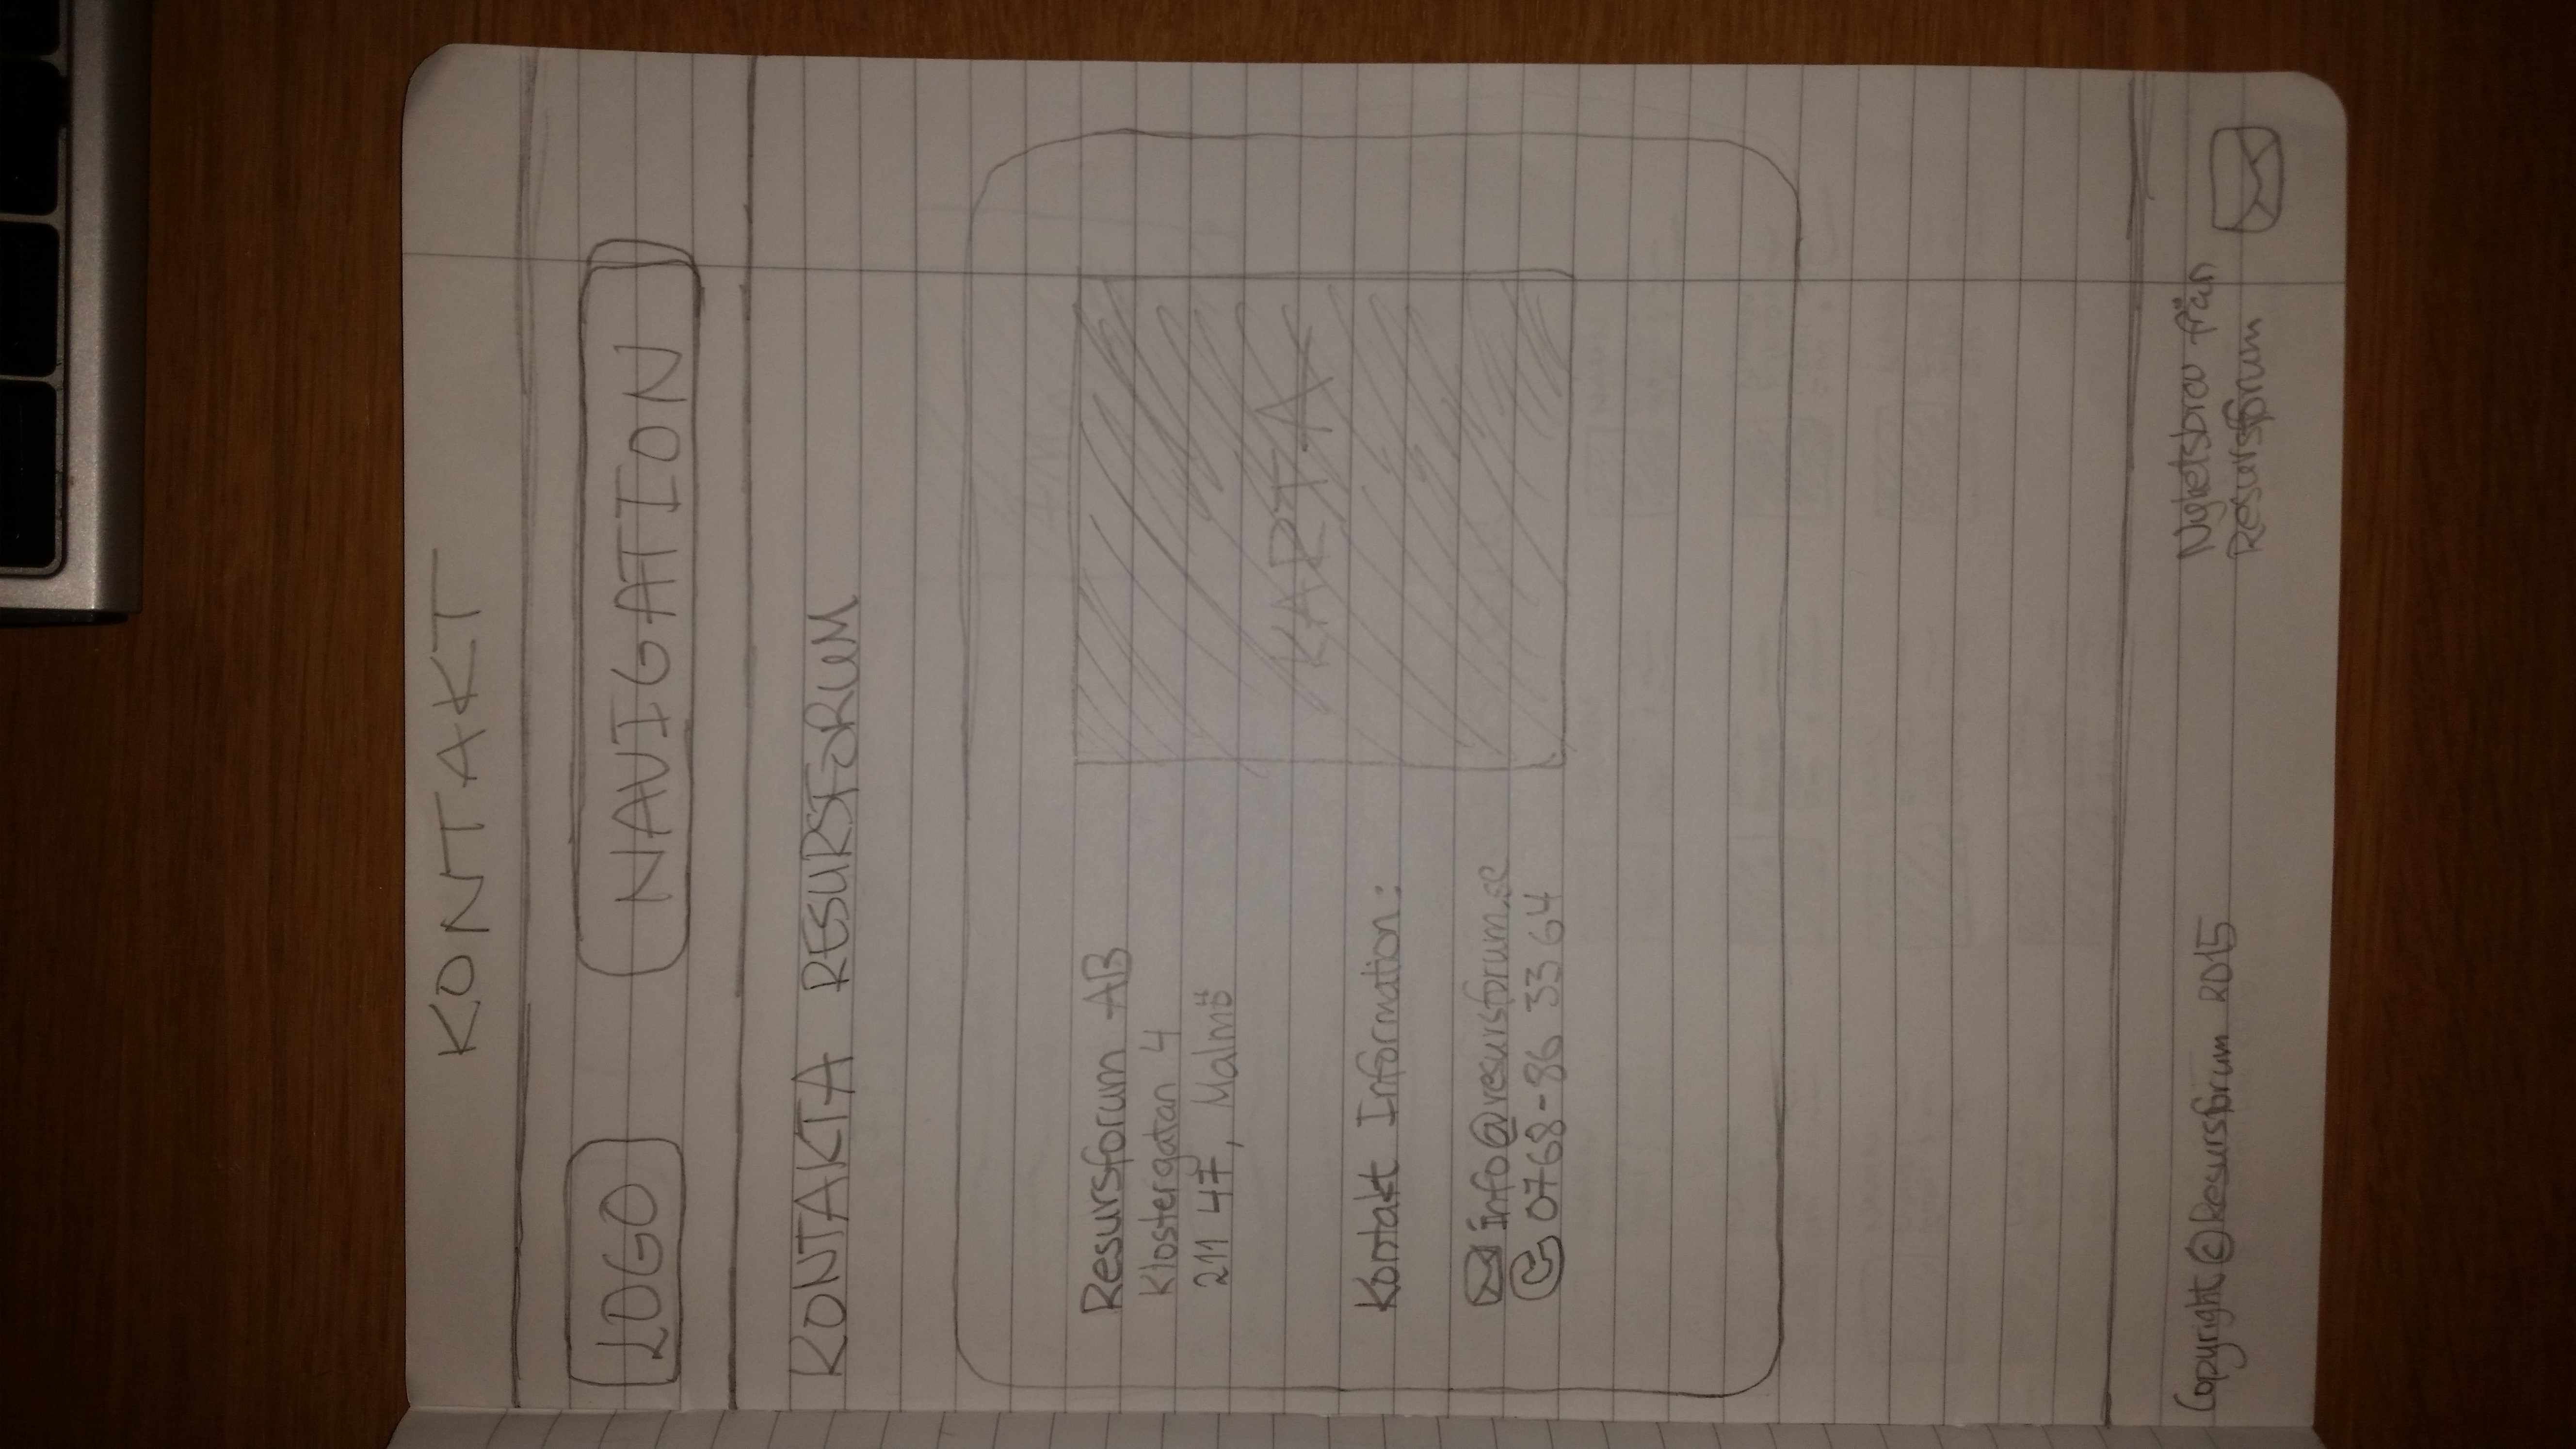 KONTAKT
LOGO
NAVIGATION
KONTAKTA RESURSFORUM
Resursforum AB
Klostergatan 4
211 47, Malmö
KARTA
Kontakt Information:
info@resursforum.se
0768-86 33 64
Copyright © Resursforum 2015
Nyhetsbrev från
Resursforum